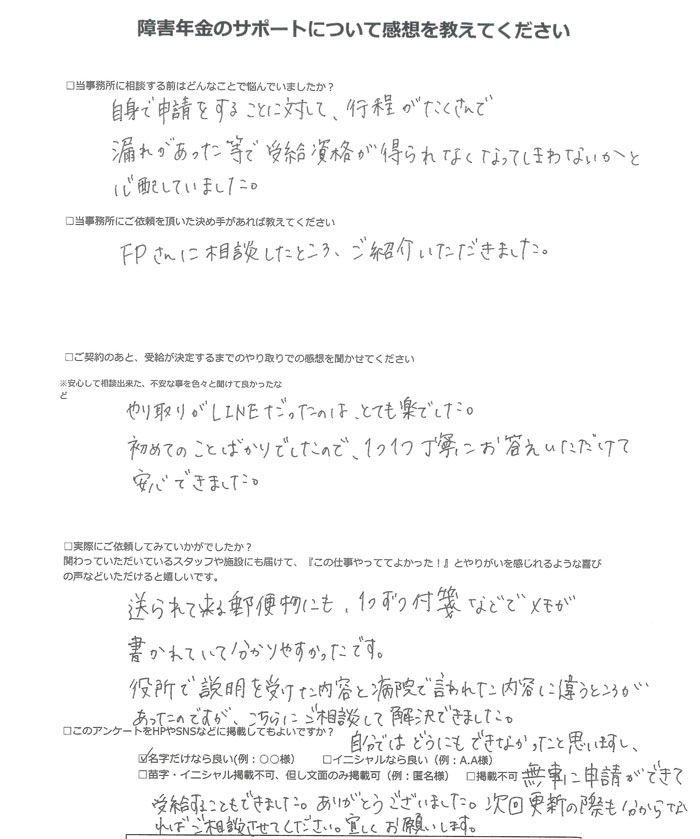 障害年金のサポートについて感想を教えてください
□当事務所に相談する前はどんなことで悩んでいましたか？
自身で申請をすることに対して、行程がたくさんで
漏れがあった等で受給資格が得られなくなってしまわないかと
心配していました。
□当事務所にご依頼を頂いた決め手があれば教えてください
FPさんに相談したところ、ご紹介いただきました。
□ご契約のあと、受給が決定するまでのやり取りでの感想を聞かせてください
※安心して相談出来た、不安な事を色々と聞けて良かったな
ど
やり取りがLINEだったのは、とても楽でした。
初めてのことばかりでしたので、1つ1つ丁寧にお答えいただけて
安心できました。
□実際にご依頼してみていかがでしたか？
関わっていただいているスタッフや施設にも届けて、『この仕事やっててよかった！』とやりがいを感じれるような喜び
の声などいただけると嬉しいです。
送られて来る郵便物にも、1つずつ付箋などでメモが
書かれていて分かりやすかったです。
役所で説明を受けた内容と病院で言われた内容に違うところが
あったのですが、こちらにご相談して解決できました。
□このアンケートをHPやSNSなどに掲載してもよいですか？
自分ではどうにもできなかったと思いますし、
☑名字だけなら良い(例：〇〇様） □イニシャルなら良い（例：A.A様）
□苗字・イニシャル掲載不可、但し文面のみ掲載可（例：匿名様） □掲載不可
無事に申請ができて
受給することもできました。ありがとうございました。次回更新の際も分からなけ
ればご相談させてください。宜しくお願いします。